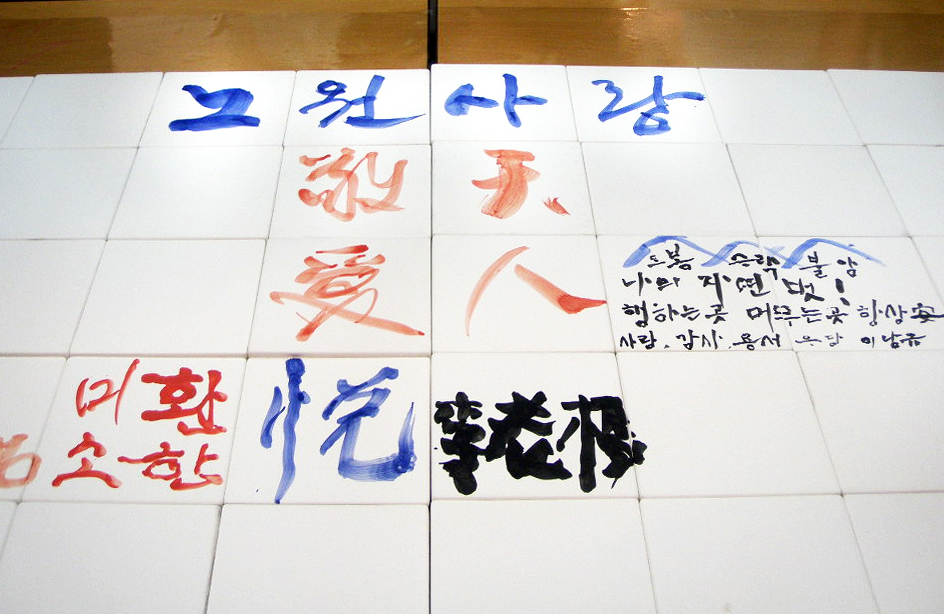 노원사랑
敬天
愛人
도봉 수락 불암
나의 자연 벗!
행하는곳 머무는곳 항상 安
사랑. 감사. 용서
환한
미소
悅
李老根